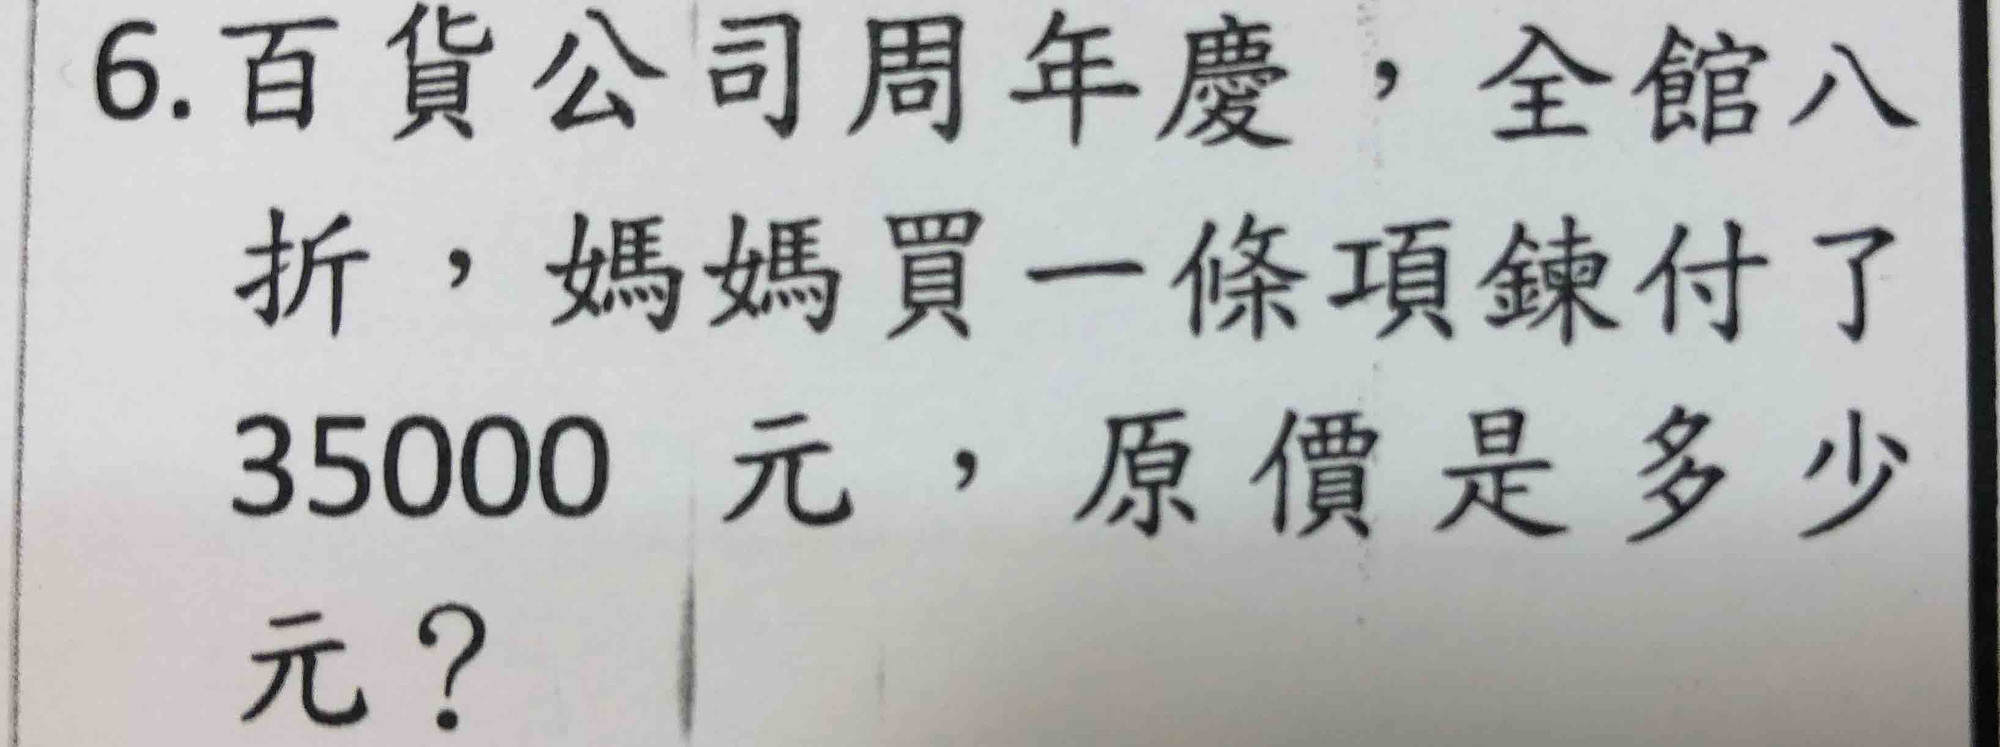 6.百貨公司周年慶，全館八
折，媽媽買一條項鍊付了
35000 元，原價是多少
元？